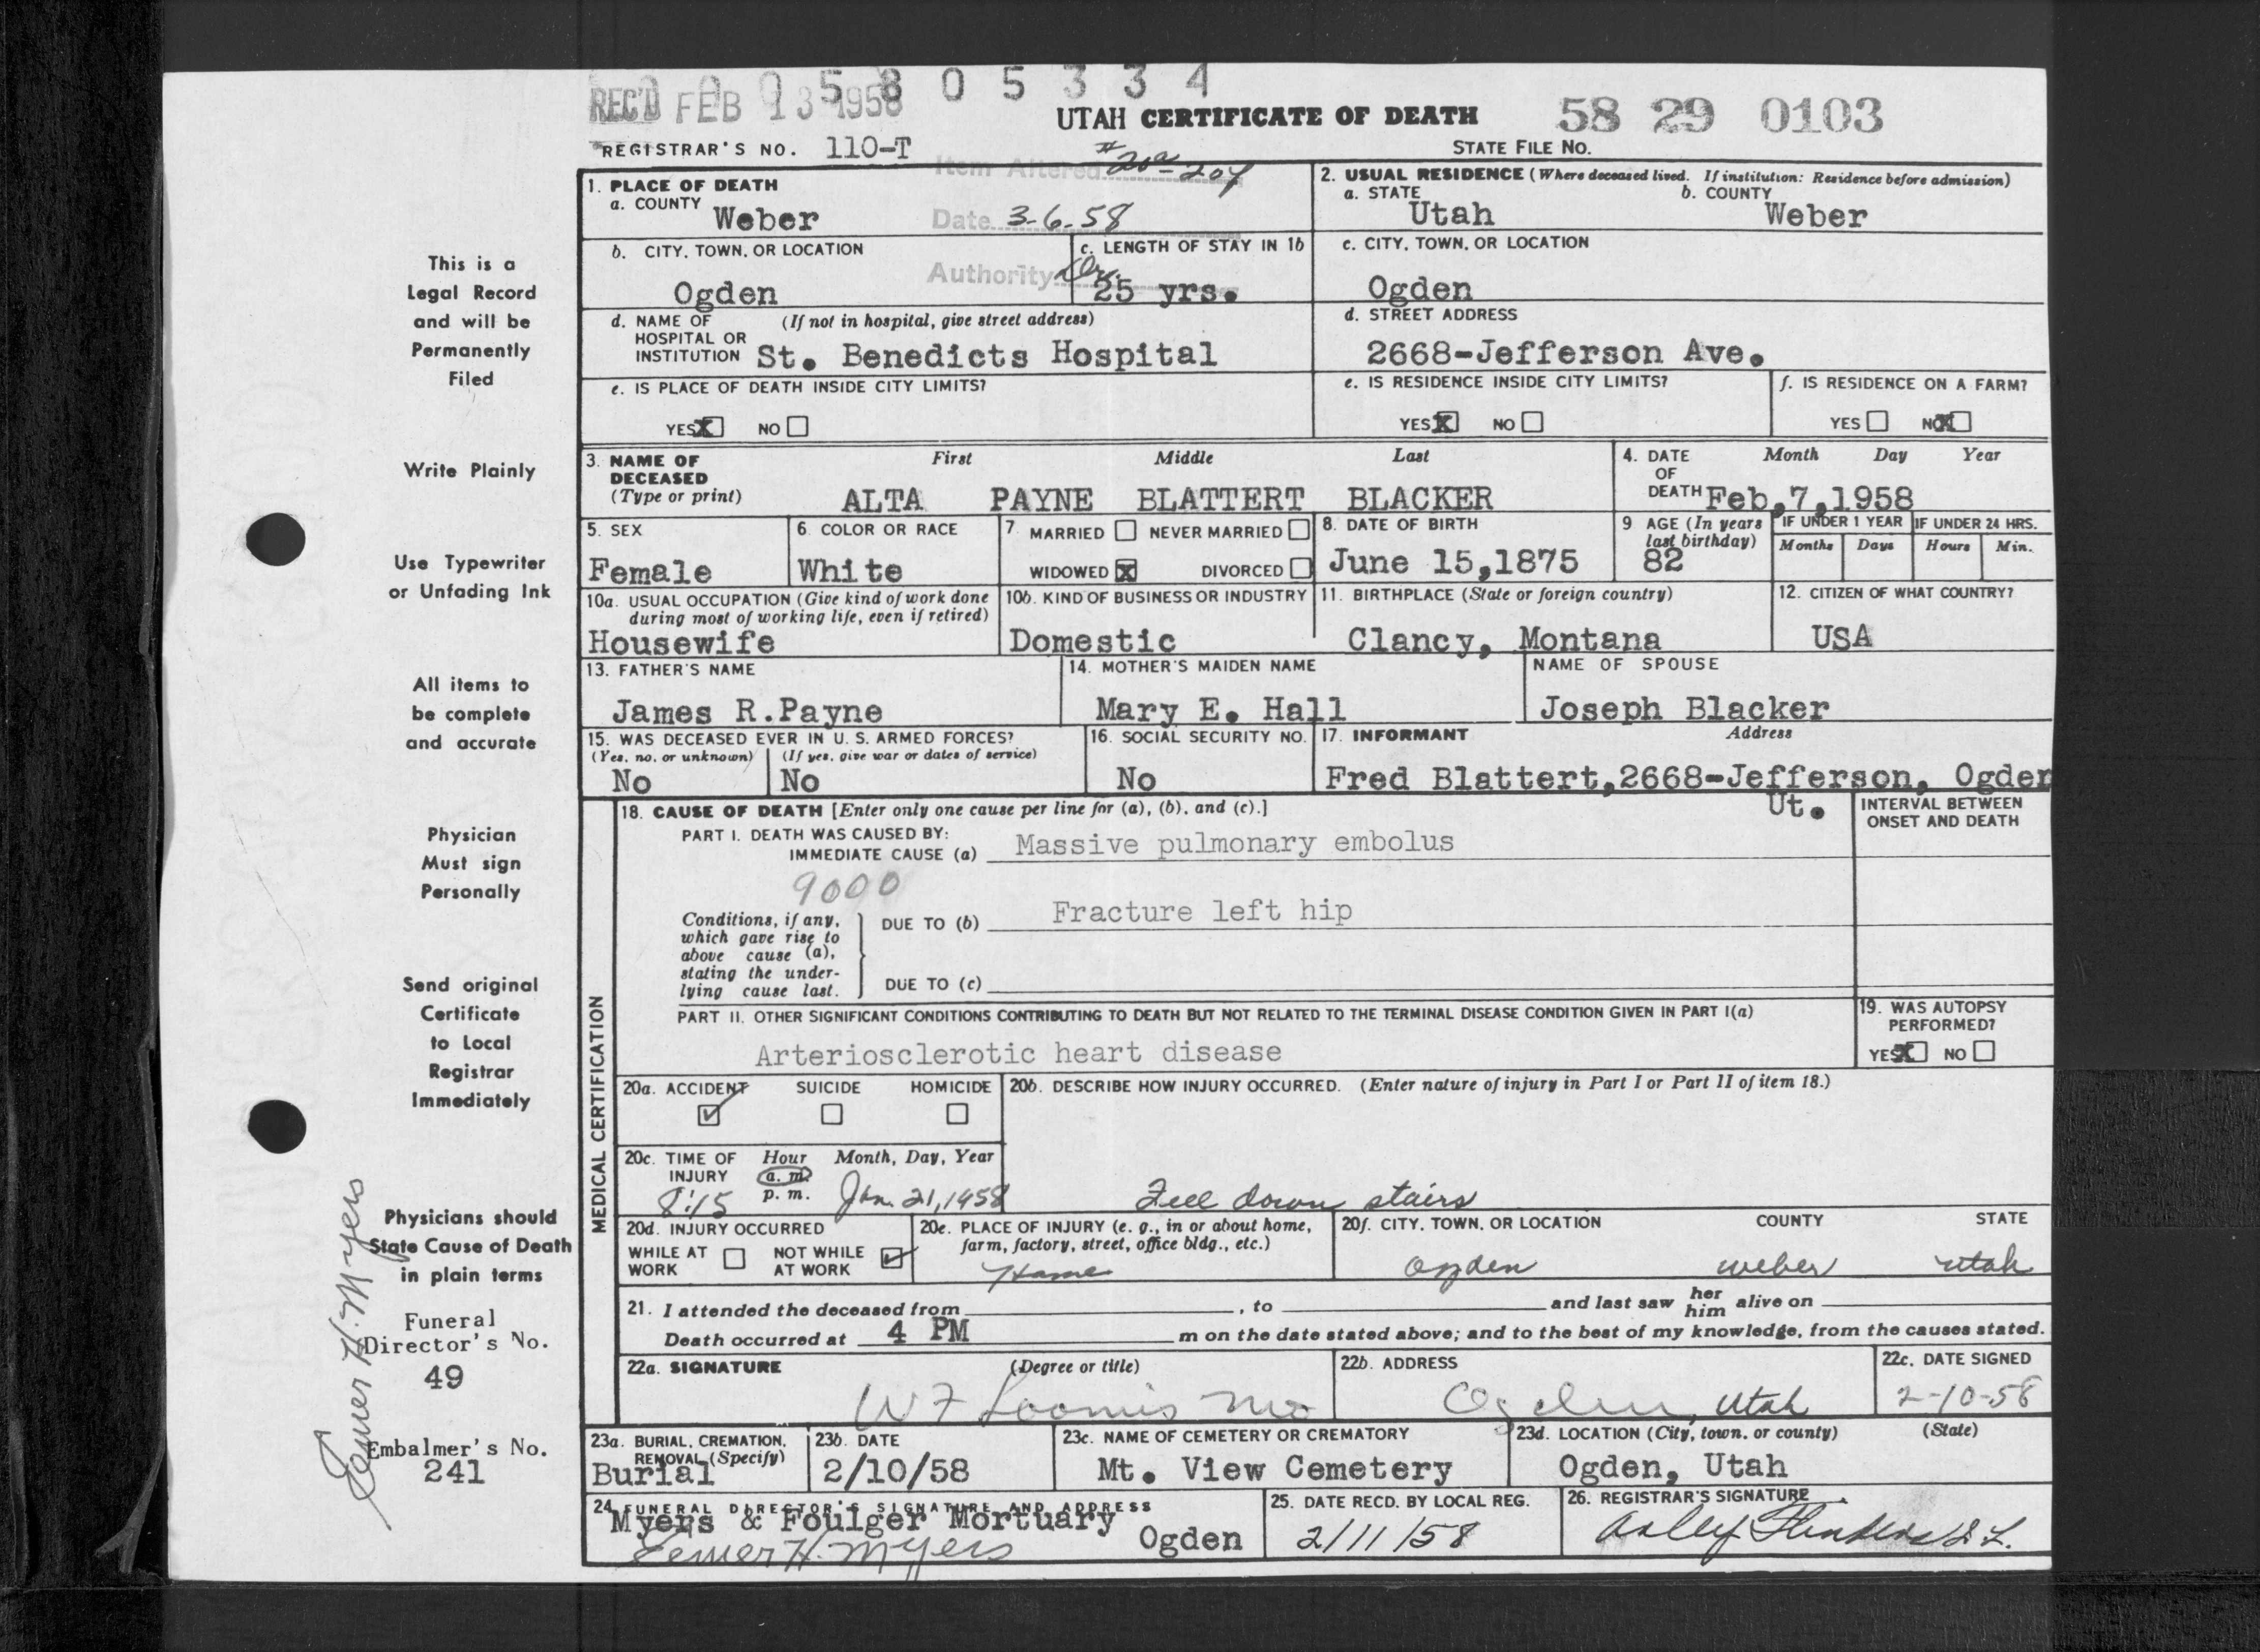 0 0 0 5 8 0 5 3 3 4
REC'D FEB 13 1958
UTAH CERTIFICATE OF DEATH
58 29 0103
REGISTRAR'S NO. 110-T
STATE FILE NO.
Item Altered #20a-20f
Date 3-6-58
Authority Dr.
1. PLACE OF DEATH
a. COUNTY Weber
2. USUAL RESIDENCE (Where deceased lived. If institution: Residence before admission)
a. STATE Utah b. COUNTY Weber
b. CITY, TOWN, OR LOCATION Ogden
c. LENGTH OF STAY IN 1b 25 yrs.
c. CITY, TOWN, OR LOCATION Ogden
d. NAME OF HOSPITAL OR INSTITUTION (If not in hospital, give street address) St. Benedicts Hospital
d. STREET ADDRESS 2668-Jefferson Ave.
e. IS PLACE OF DEATH INSIDE CITY LIMITS?
YES X NO
e. IS RESIDENCE INSIDE CITY LIMITS?
YES X NO
f. IS RESIDENCE ON A FARM?
YES NO X
3. NAME OF DECEASED (Type or print)
First Middle Last
ALTA PAYNE BLATTERT BLACKER
4. DATE OF DEATH Month Day Year
Feb,7,1958
5. SEX Female
6. COLOR OR RACE White
7. MARRIED NEVER MARRIED
WIDOWED X DIVORCED
8. DATE OF BIRTH June 15,1875
9 AGE (In years last birthday) 82
IF UNDER 1 YEAR Months Days
IF UNDER 24 HRS. Hours Min.
10a. USUAL OCCUPATION (Give kind of work done during most of working life, even if retired)
Housewife
10b. KIND OF BUSINESS OR INDUSTRY
Domestic
11. BIRTHPLACE (State or foreign country)
Clancy, Montana
12. CITIZEN OF WHAT COUNTRY?
USA
13. FATHER'S NAME
James R.Payne
14. MOTHER'S MAIDEN NAME
Mary E. Hall
NAME OF SPOUSE
Joseph Blacker
15. WAS DECEASED EVER IN U. S. ARMED FORCES?
(Yes, no, or unknown) (If yes, give war or dates of service)
No No
16. SOCIAL SECURITY NO.
No
17. INFORMANT Address
Fred Blattert,2668-Jefferson, Ogden
Ut.
MEDICAL CERTIFICATION
18. CAUSE OF DEATH [Enter only one cause per line for (a), (b), and (c).]
INTERVAL BETWEEN ONSET AND DEATH
PART I. DEATH WAS CAUSED BY:
IMMEDIATE CAUSE (a) Massive pulmonary embolus
9000
Conditions, if any, which gave rise to above cause (a), stating the underlying cause last.
DUE TO (b) Fracture left hip
DUE TO (c)
PART II. OTHER SIGNIFICANT CONDITIONS CONTRIBUTING TO DEATH BUT NOT RELATED TO THE TERMINAL DISEASE CONDITION GIVEN IN PART I(a)
Arteriosclerotic heart disease
19. WAS AUTOPSY PERFORMED?
YES X NO
20a. ACCIDENT SUICIDE HOMICIDE
20b. DESCRIBE HOW INJURY OCCURRED. (Enter nature of injury in Part I or Part II of item 18.)
Fell down stairs
20c. TIME OF INJURY Hour Month, Day, Year
8:15 a. m. p. m. Jan. 21, 1958
20d. INJURY OCCURRED
WHILE AT WORK NOT WHILE AT WORK
20e. PLACE OF INJURY (e. g., in or about home, farm, factory, street, office bldg., etc.)
Home
20f. CITY, TOWN, OR LOCATION COUNTY STATE
Ogden Weber Utah
21. I attended the deceased from , to and last saw her him alive on
Death occurred at 4 PM m on the date stated above; and to the best of my knowledge, from the causes stated.
22a. SIGNATURE (Degree or title)
W F Loomis MD
22b. ADDRESS
Ogden, Utah
22c. DATE SIGNED
2-10-58
23a. BURIAL, CREMATION, REMOVAL (Specify)
Burial
23b. DATE
2/10/58
23c. NAME OF CEMETERY OR CREMATORY
Mt. View Cemetery
23d. LOCATION (City, town, or county) (State)
Ogden, Utah
24. FUNERAL DIRECTOR'S SIGNATURE AND ADDRESS
Myers & Foulger Mortuary
Elmer H. Myers Ogden
25. DATE RECD. BY LOCAL REG.
2/11/58
26. REGISTRAR'S SIGNATURE
This is a
Legal Record
and will be
Permanently
Filed
Write Plainly
Use Typewriter
or Unfading Ink
All items to
be complete
and accurate
Physician
Must sign
Personally
Send original
Certificate
to Local
Registrar
Immediately
Physicians should
State Cause of Death
in plain terms
Funeral
Director's No.
49
Embalmer's No.
241
Elmer H. Myers